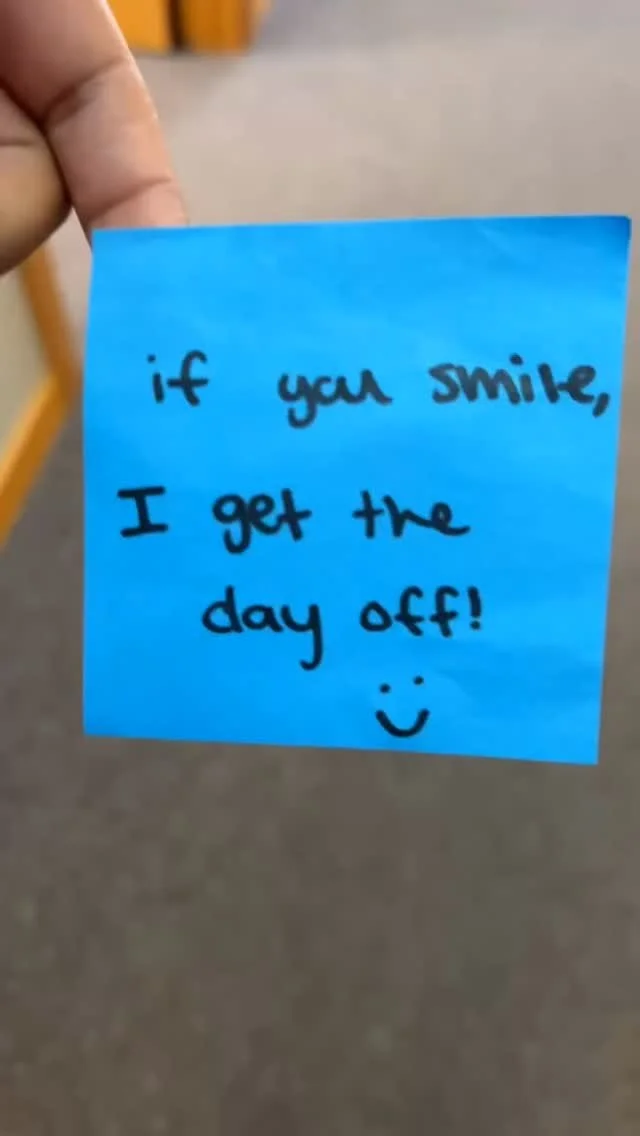 if you smile,
I get the
day off!